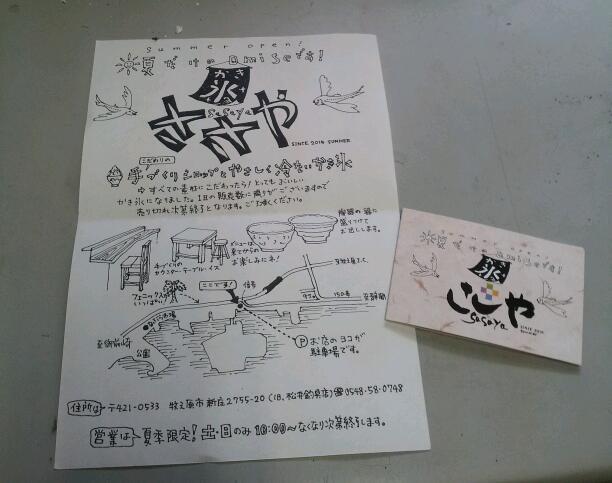 summer open!
夏だけのomiseです!
かき
氷
ささや
sasaya
SINCE 2014 SUMMER
こだわりの
手づくりシロップとやさしく冷たいかき氷
すべての素材にこだわったら!とってもおいしい
かき氷になりました。1日の販売数に限りがございますので
売り切れ次第終了となります。ご了承ください。
陶器の器に
盛りつけて
お出しします。
メニューは
来てからの
お楽しみにネ!
手づくりの
カウンター・テーブル・イス
フェニックスが
いっぱい
ここです!
信号
150号
至静岡
至御前崎
公園
P お店のヨコが
駐車場です。
住所は 〒421-0533 牧之原市新庄2755-20(旧、松井釣具店)☎0548-58-0748
営業は 夏季限定!土・日のみ10:00〜なくなり次第終了します。
summer open!
夏だけのomiseです!
かき
氷
ささや
sasaya
SINCE 2014
SUMMER